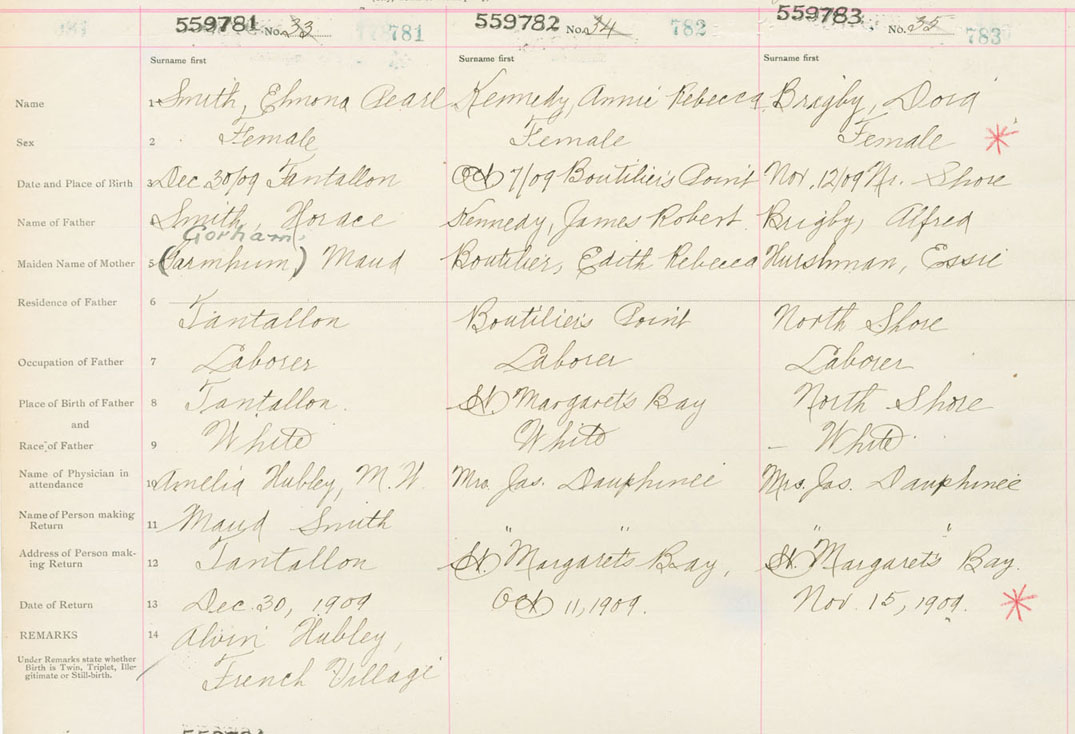 559781 No. 33 781 559782 No. 34 782 559783 No. 35 783
Surname first Surname first Surname first
Name 1 Smith, Elmona Pearl Kennedy, Annie Rebecca Brigby, Dora
Sex 2 Female Female Female *
Date and Place of Birth 3 Dec. 30/09 Tantallon Oct 7/09 Boutilier's Point Nov. 12/09 Nr. Shore
Name of Father 4 Smith, Horace Kennedy, James Robert Brigby, Alfred
Gorham,
Maiden Name of Mother 5 (Garmhum) Maud Boutilier, Edith Rebecca Hurshman, Essie
Residence of Father 6
Tantallon Boutilier's Point North Shore
Occupation of Father 7 Laborer Laborer Laborer
Place of Birth of Father 8 Tantallon. St Margaret's Bay North Shore
and
Race of Father 9 White White White
Name of Physician in
attendance 10 Amelia Hubley, M.W. Mrs. Jas. Dauphinee Mrs. Jas. Dauphinee
Name of Person making
Return 11 Maud Smith " " " "
Address of Person mak-
ing Return 12 Tantallon St. Margaret's Bay, St. Margaret's Bay.
Date of Return 13 Dec. 30, 1909 Oct 11, 1909. Nov. 15, 1909. *
REMARKS 14 Alvin Hubley,
Under Remarks state whether
Birth is Twin, Triplet, Ille-
gitimate or Still-birth.
French Village